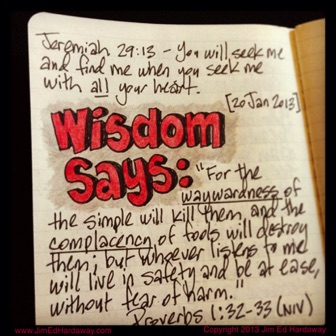 Jeremiah 29:13 - You will seek me
and find me when you seek me
with all your heart.
[20 Jan 2013]
Wisdom
Says: "For the
waywardness of
the simple will kill them, and the
complacency of fools will destroy
them; but whoever listens to me
will live in safety and be at ease,
without fear of harm."
Proverbs 1:32-33 (NIV)
www.JimEdHardaway.com
Copyright 2013 Jim Ed Hardaway